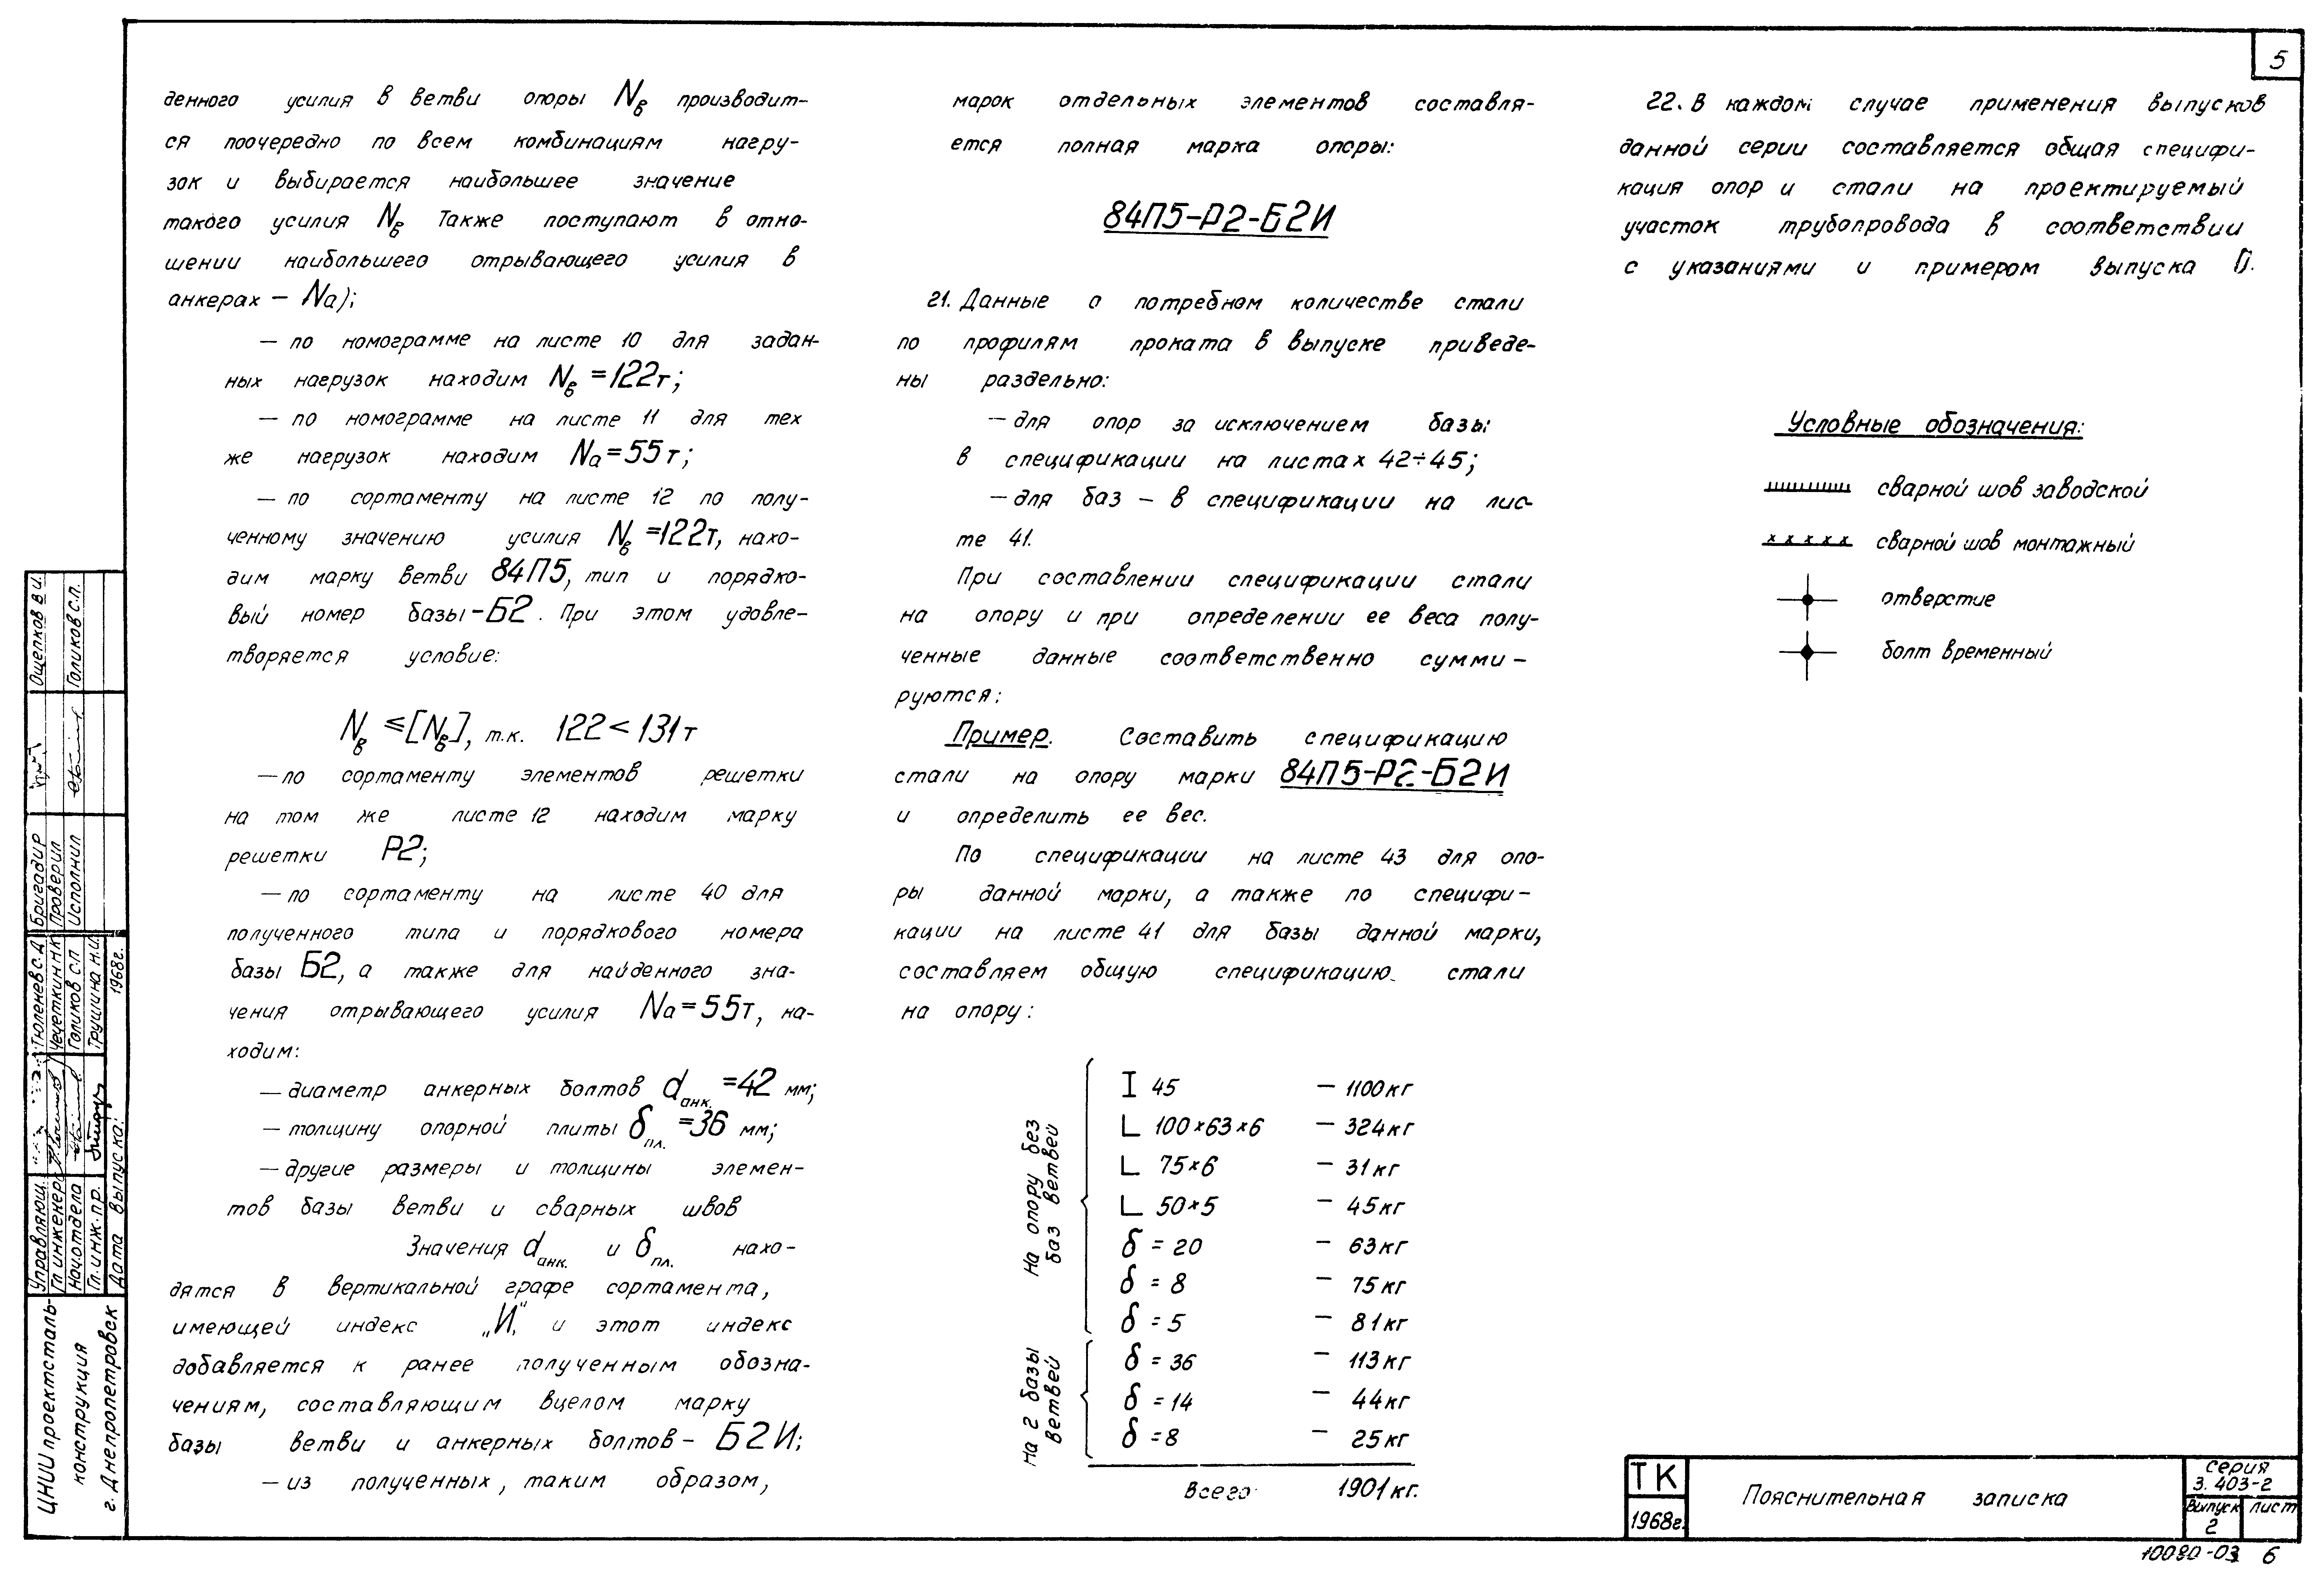 5
денного усилия в ветви опоры Nв производит-
ся поочередно по всем комбинациям нагру-
зок и выбирается наибольшее значение
такого усилия Nв Также поступают в отно-
шении наибольшего отрывающего усилия в
анкерах – Nа);
— по номограмме на листе 10 для задан-
ных нагрузок находим Nв =122т;
— по номограмме на листе 11 для тех
же нагрузок находим Nа=55т;
— по сортаменту на листе 12 по полу-
ченному значению усилия Nв =122т, нахо-
дим марку ветви 84П5, тип и порядко-
вый номер базы-Б2. При этом удовле-
творяется условие:
Nв ≤[Nв], т.к. 122<131т
—по сортаменту элементов решетки
на том же листе 12 находим марку
решетки Р2;
—по сортаменту на листе 40 для
полученного типа и порядкового номера
базы Б2, а также для найденного зна-
чения отрывающего усилия Nа=55т, на-
ходим:
—диаметр анкерных болтов dанк. =42 мм;
—толщину опорной плиты δпл. =36 мм;
—другие размеры и толщины элемен-
тов базы ветви и сварных швов
Значения dанк. и δпл. нахо-
дятся в вертикальной графе сортамента,
имеющей индекс „И“, и этот индекс
добавляется к ранее полученным обозна-
чениям, составляющим вцелом марку
базы ветви и анкерных болтов– Б2И;
—из полученных, таким образом,
марок отдельных элементов составля-
ется полная марка опоры:
84П5-Р2-Б2И
21. Данные о потребном количестве стали
по профилям проката в выпуске приведе-
ны раздельно:
—для опор за исключением базы
в спецификации на листах 42÷45;
—для баз – в спецификации на лис-
те 41.
При составлении спецификации стали
на опору и при определении ее веса полу-
ченные данные соответственно сумми-
руются:
Пример. Составить спецификацию
стали на опору марки 84П5-Р2-Б2И
и определить ее вес.
По спецификации на листе 43 для опо-
ры данной марки, а также по специфи-
кации на листе 41 для базы данной марки,
составляем общую спецификацию стали
на опору:
На опору без
баз ветвей
I 45 – 1100кг
L 100×63×6 – 324кг
L 75×6 – 31кг
L 50×5 – 45кг
δ = 20 – 63кг
δ = 8 – 75кг
δ = 5 – 81кг
На 2 базы
ветвей
δ = 36 – 113кг
δ = 14 – 44кг
δ = 8 – 25кг
Всего 1901кг.
22. В каждом случае применения выпусков
данной серии составляется общая специфи-
кация опор и стали на проектируемый
участок трубопровода в соответствии
с указаниями и примером выпуска
Условные обозначения:
сварной шов заводской
сварной шов монтажный
отверстие
болт временный
ТК
1968г.
Пояснительная записка
серия
3.403-2
Выпуск
2
лист
10080-03 6
Ощепков В.И.
Голиков С.П.
Бригадир
Проверил
Исполнил
Тюленев С.Д
Чечеткин Н.К
Голиков С.П
Трушина Н.И.
1968г.
Управляющ.
Гл.инженер
Нач.отдела
Гл.инж.пр.
Дата выпуска:
ЦНИИпроектсталь-
конструкция
г. Днепропетровск